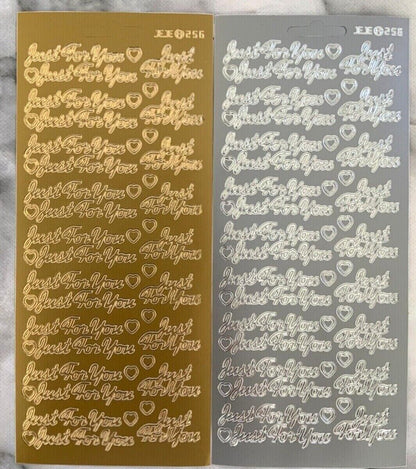 256
Just For You Just
Just For You For You
Just For You Just
Just For You For You
Just For You Just
Just For You For You
Just For You Just
Just For You For You
Just For You Just
Just For You For You
Just For You Just
Just For You For You
Just For You Just
Just For You For You
Just For You Just
Just For You For You
Just For You Just
Just For You For You
256
Just For You Just
Just For You For You
Just For You Just
Just For You For You
Just For You Just
Just For You For You
Just For You Just
Just For You For You
Just For You Just
Just For You For You
Just For You Just
Just For You For You
Just For You Just
Just For You For You
Just For You Just
Just For You For You
Just For You Just
Just For You For You